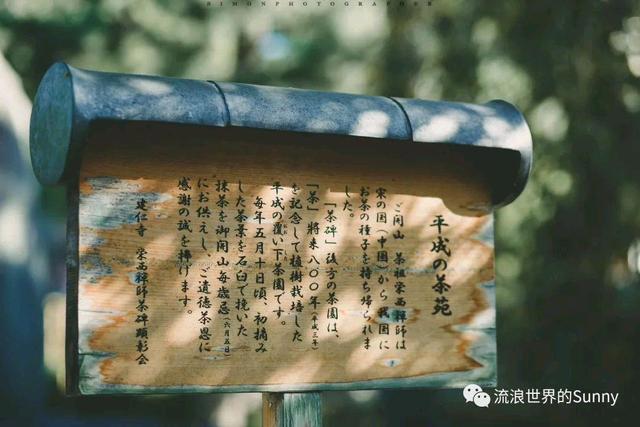 SIMONPHOTOGRAPHER
平成の茶苑
ご開山 茶祖栄西禅師は
宋の国(中国)から我国に
お茶の種子を持ち帰られま
した。
「茶碑」後方の茶園は、
「茶」将来八〇〇年(平成三年)
を記念して植樹栽培した
平成の覆い下茶園です。
毎年五月十日頃、初摘み
した茶葉を石臼で挽いた
抹茶を御開山毎歳忌(六月五日)
にお供えし、ご遺徳茶恩に
感謝の誠を捧げます。
建仁寺 栄西禅師茶碑顕彰会
流浪世界的Sunny